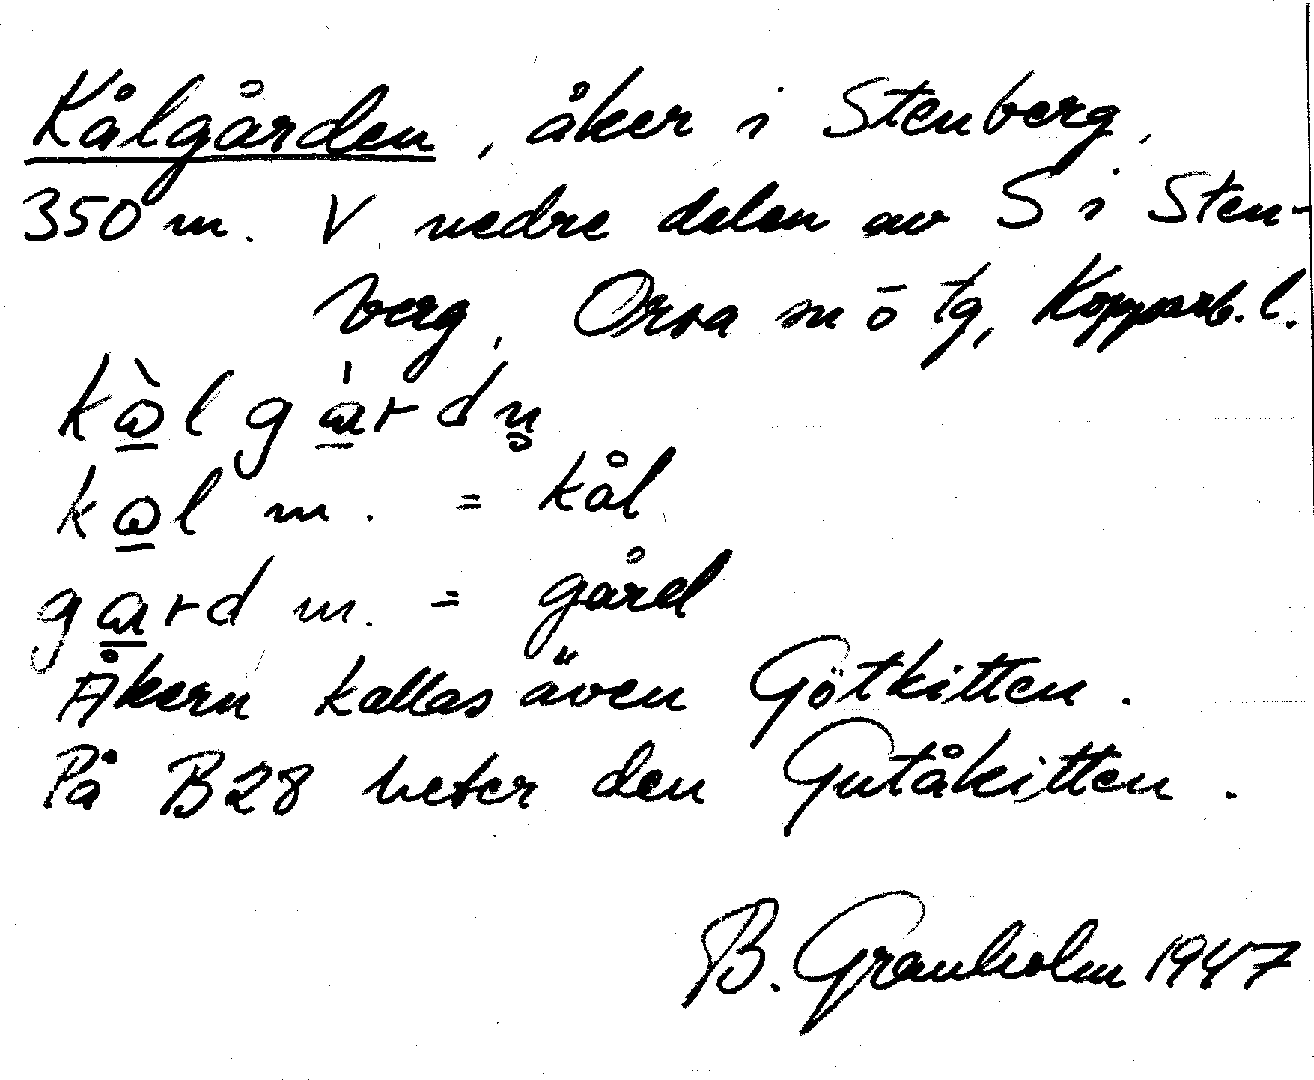 Kålgården, åker i Stenberg,
350 m. V nedre delen av S i Sten-
berg, Orsa m ö tg, Kopparb. l.
kὼ̲l gά̲rdn̥
kω̲l m. = kål
gα̲rd m. = gård
Åkern kallas även Götkitten.
På B28 heter den Gutåkitten.
B. Granholm 1947